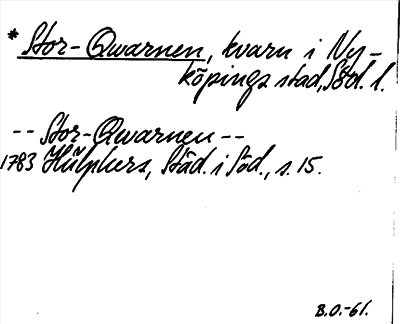 * Stor-Qwarnen, kvarn i Ny-
köpings stad, Söd. l.
-- Stor-Qwarnen --
1783 Hülphers, Städ. i Söd., s. 15.
B.O.-61.